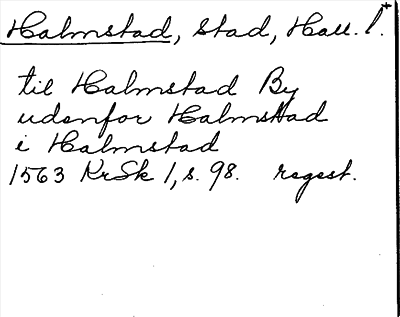 Halmstad, Stad, Hall. l.+
til Halmstad By
udenfor Halmstad
i Halmstad
1563 KrSk 1, s. 98. regest.